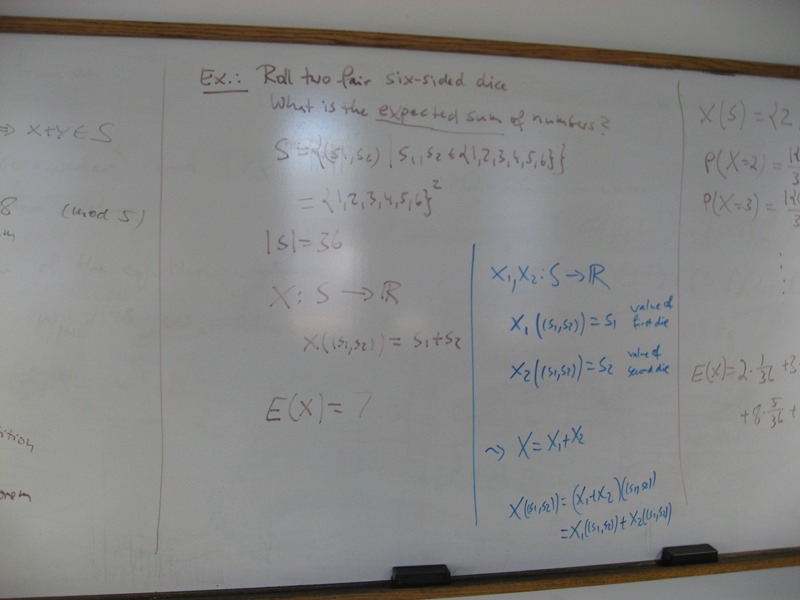 ⇒ x+y ∈ S
8 (mod 5)
Ex.: Roll two fair six-sided dice
What is the expected sum of numbers?
S = {(s1, s2) | s1, s2 ∈ {1,2,3,4,5,6}}
= {1,2,3,4,5,6}²
|S| = 36
X: S → ℝ
X((s1,s2)) = s1+s2
E(X) = 7
X1, X2: S → ℝ
X1((s1,s2)) = s1 value of first die
X2((s1,s2)) = s2 value of second die
⇝ X = X1+X2
X((s1,s2)) = (X1+X2)((s1,s2))
= X1((s1,s2)) + X2((s1,s2))
X(S) = {2
P(X=2) =
P(X=3) =
E(X) = 2·1/36 + 3·
+8·5/36 +